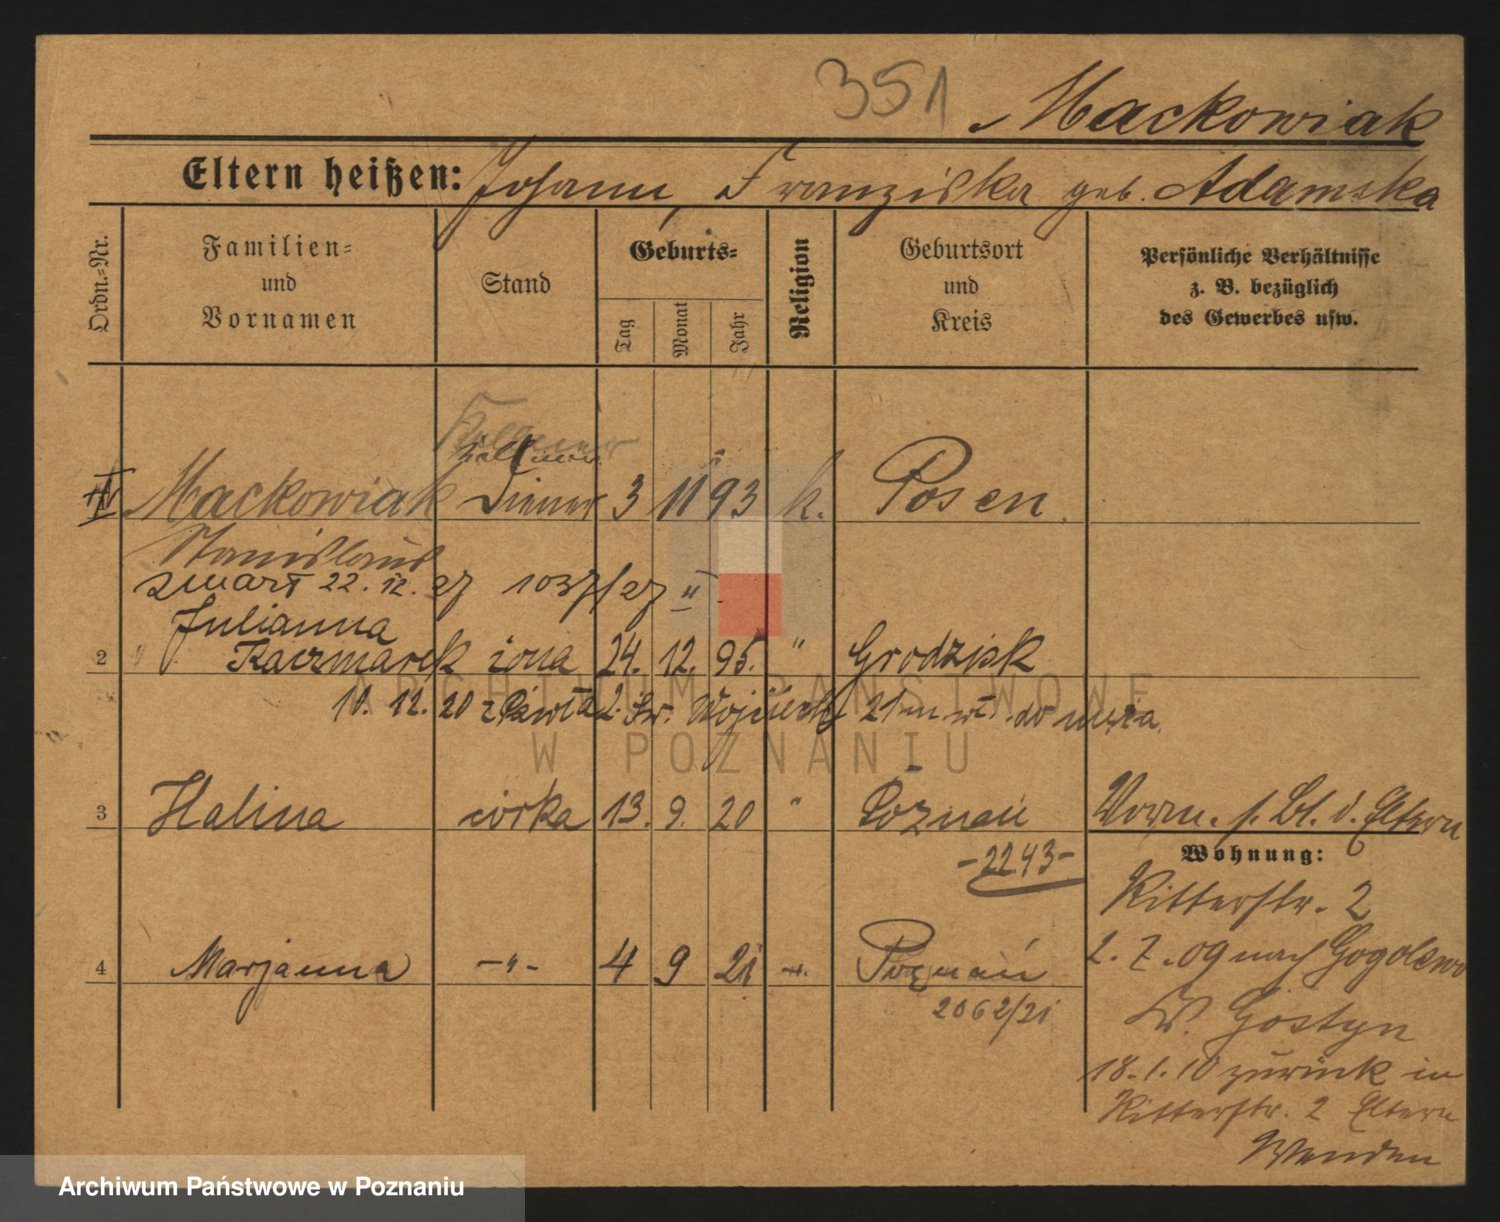 351 Mackowiak
Eltern heißen: Johann, Franziska geb. Adamska
Ordn.=Nr.
Familien=
und
Vornamen
Stand
Geburts=
Tag
Monat
Jahr
Religion
Geburtsort
und
Kreis
Persönliche Verhältnisse
z. B. bezüglich
des Gewerbes usw.
Kellner
Mackowiak Diener 3 11 93 k. Posen.
Stanislaus
zmarł 22. 12. 27 1037/27 II
Julianna
2 " Kaczmarek żona 24. 12. 95. " Grodzisk
10. 12. 20 z Św. Wojciech 21 m wł. do męża.
ARCHIWUM PAŃSTWOWE
W POZNANIU
3 Halina córka 13. 9. 20 " Poznań
-2243-
Vorm. s. Bl. d. Eltern
Wohnung:
Ritterstr. 2
2. 7. 09 nach Gogolewo
4 Marjanna -"- 4 9 21 -"- Poznań
2062/21
K. Gostyn
18. 1. 10 zurück in
Ritterstr. 2 Eltern
Wenden
Archiwum Państwowe w Poznaniu